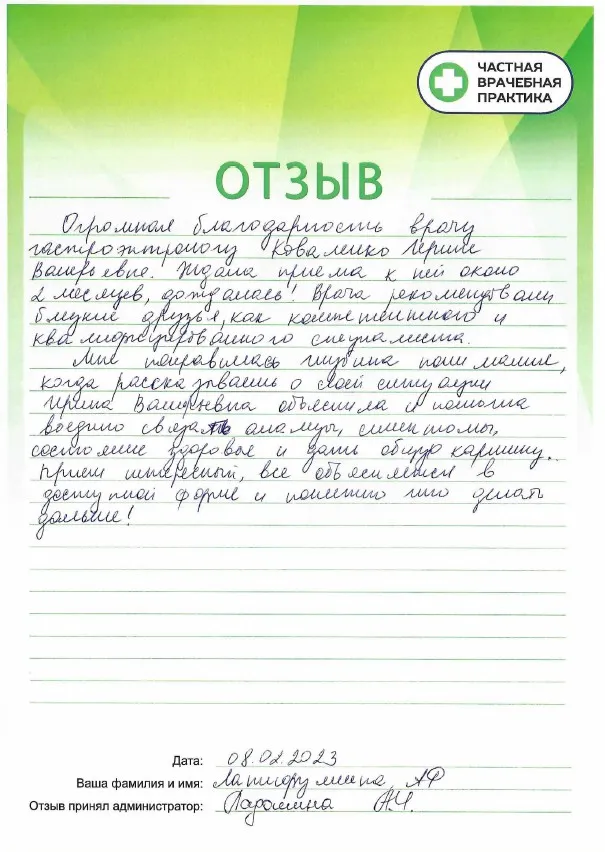 ЧАСТНАЯ
ВРАЧЕБНАЯ
ПРАКТИКА
ОТЗЫВ
Огромная благодарность врачу
гастроэнтрологу Коваленко Ирине
Валерьевне. Ждала приема к ней около
2 месяцев, дождалась! Врача рекомендовали
близкие друзья, как компетентного и
квалифицированного специалиста.
Мне понравилась глубина понимания,
когда рассказываешь о своей ситуации
Ирина Валерьевна объяснила и помогла
воедино связать анализы, симптомы,
состояние здоровья и дать общую картину.
Прием интересный, все объясняется в
доступной форме и понятно что делать
дальше!
Дата: 08.02.2023
Ваша фамилия и имя: АФ
Отзыв принял администратор: Паромина А.Ч.